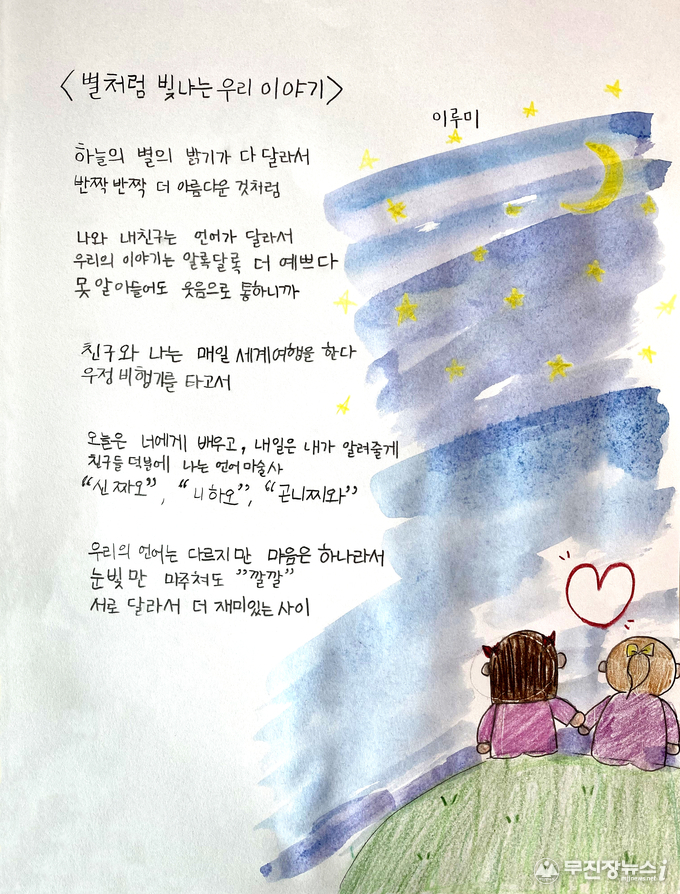 <별처럼 빛나는 우리 이야기>
이루미
하늘의 별의 밝기가 다 달라서
반짝 반짝 더 아름다운 것처럼
나와 내친구는 언어가 달라서
우리의 이야기는 알록달록 더 예쁘다
못 알아들어도 웃음으로 통하니까
친구와 나는 매일 세계여행을 한다
우정 비행기를 타고서
오늘은 너에게 배우고, 내일은 내가 알려줄게
친구들 덕분에 나는 언어마술사
“신짜오”, “니하오”, “곤니찌와”
우리의 언어는 다르지만 마음은 하나라서
눈빛만 마주쳐도 ”깔깔”
서로 달라서 더 재미있는 사이
무진장뉴스i
mjjnews.net